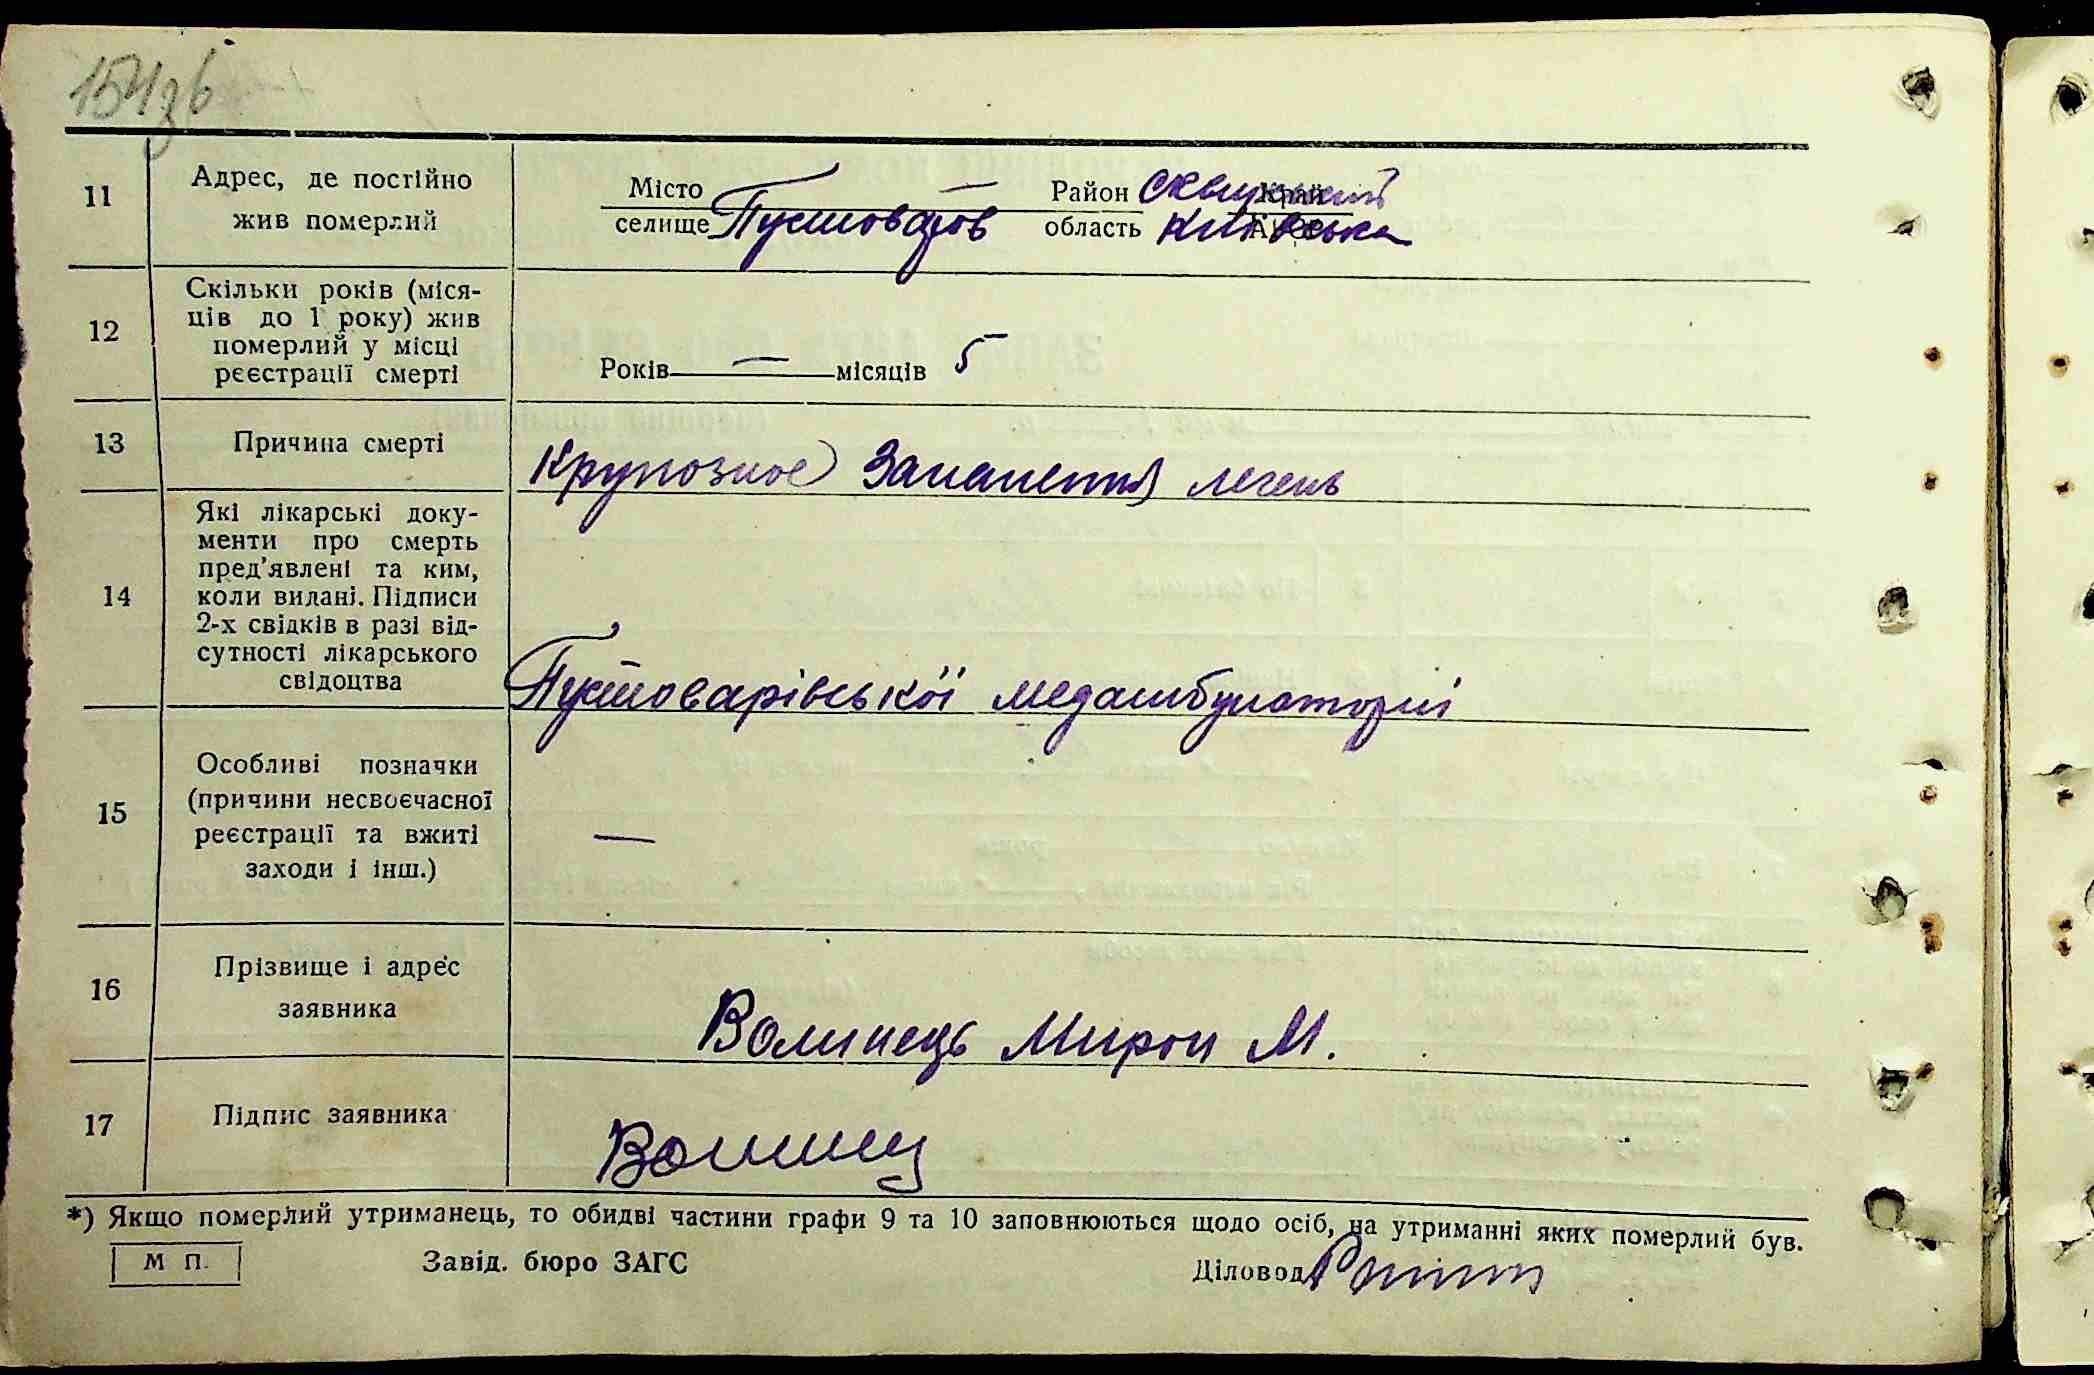 154зв
11 Адрес, де постійно жив померлий
Місто — Район Сквирський Край
селище Пустоваров область Київська
12 Скільки років (міся-
ців до 1 року) жив
померлий у місці
реєстрації смерті
Років — місяців 5
13 Причина смерті
Крупозное Запалення легень
14 Які лікарські доку-
менти про смерть
пред’явлені та ким,
коли видані. Підписи
2-х свідків в разі від-
сутності лікарського
свідоцтва
Пустоварівської медамбулаторії
15 Особливі позначки
(причини несвоєчасної
реєстрації та вжиті
заходи і інш.)
—
16 Прізвище і адрес
заявника
Волинець Мирон М.
17 Підпис заявника
Волинец
*) Якщо померлий утриманець, то обидві частини графи 9 та 10 заповнюються щодо осіб, на утриманні яких померлий був.
М П. Завід. бюро ЗАГС Діловод